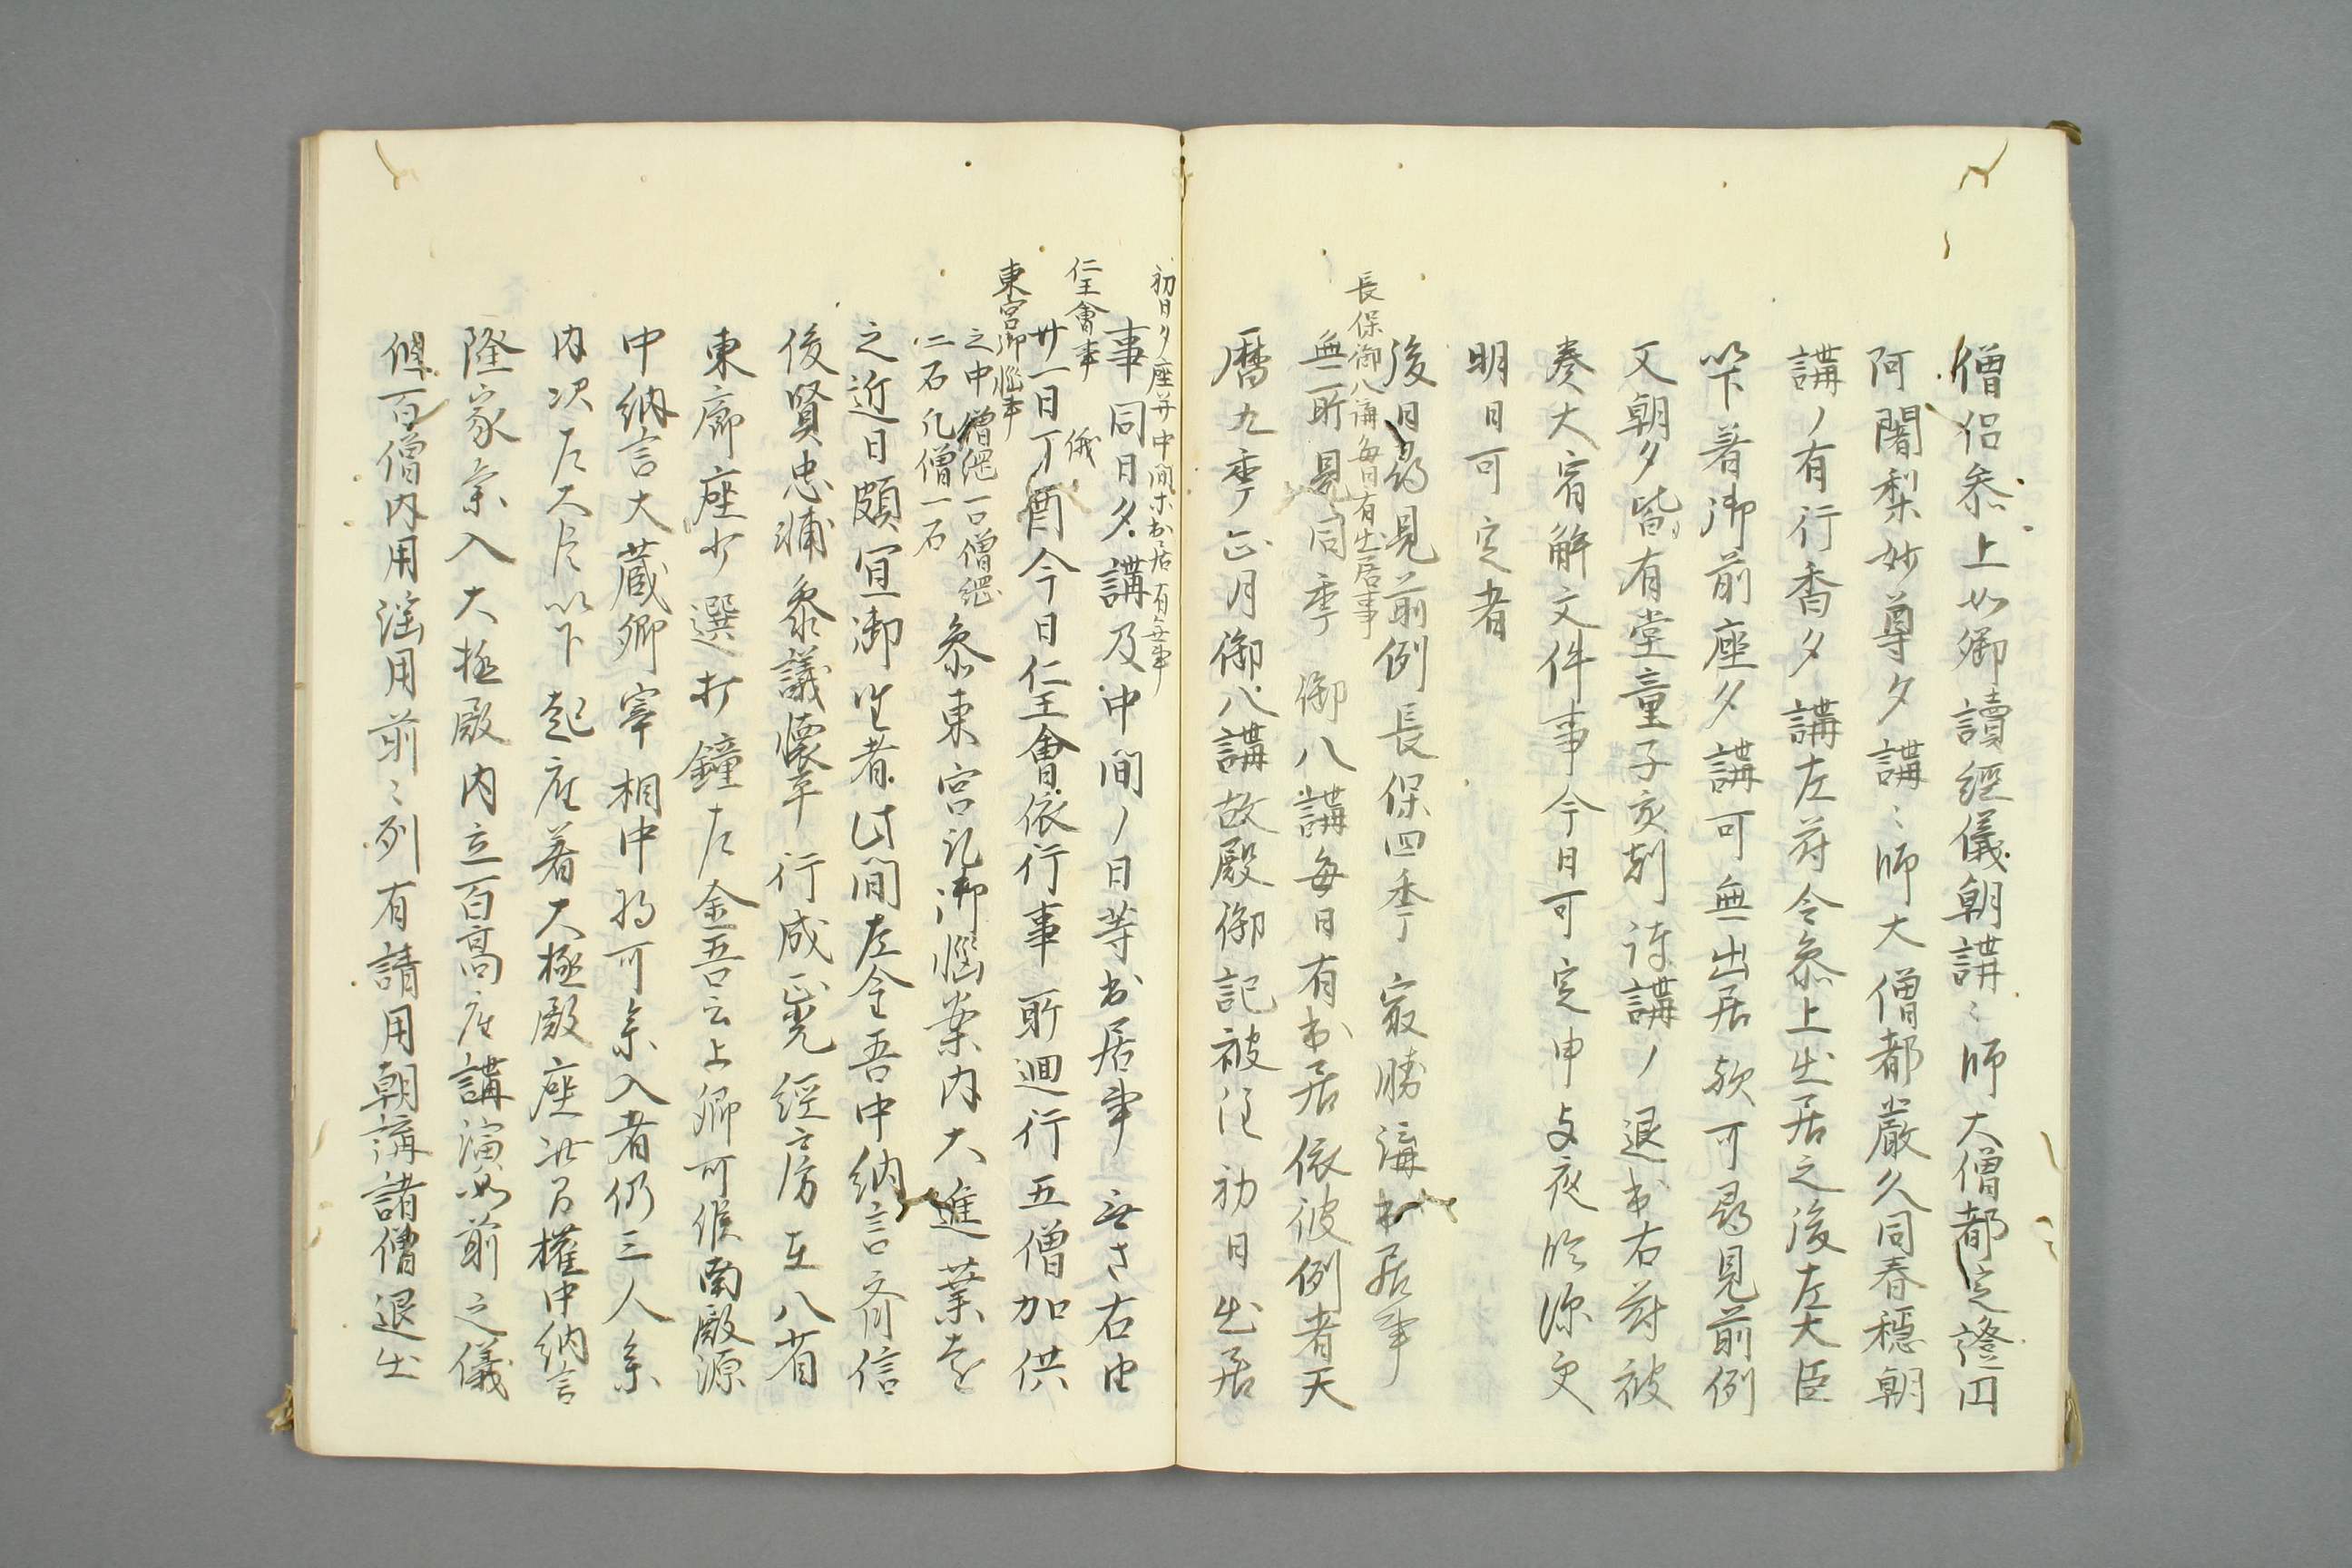 僧侶参上如御讀經儀朝講〻師大僧都定澄
阿闍梨妙尊夕講〻師大僧都嚴久同春穏朝
講ノ有行香夕講左府令参上出居之後左大臣
以下着御前座夕講可無出居歟可尋見前例
又朝夕皆有堂童子亥剋許講ノ退出右府被
奏大宥解文件事今日可定申夜臨深更
明日可定者
後日尋見前例長保四季最勝講出居事
長保御八講毎日有出居事
無所見同季御八講毎日有出居依彼例者天
暦九季正月御八講故殿御記被注初日出居
初日夕座并中間ホ出居有無事
事同日夕講及中間ノ日等出居事無左右由
仁王會事
廿一日丁酉今日仁王會依行事所廻行五僧加供
俄
東宮御惱事
之中僧綱一口僧綱
二石凡僧一石
参東宮訊御惱案内大進業遠
之近日頗宜御坐者此間左金吾中納言齊信
俊賢忠輔参議懐平行成正光經房在八省
東廊座少選打鐘左金吾云上卿可候南殿源
中納言大蔵卿宰相中将可参入者仍三人参
内次左大臣以下起座着大極殿座此間權中納言
隆家参入大極殿内立百高座講演如前之儀
但百僧内用謡用前〻列有請用朝講諸僧退出